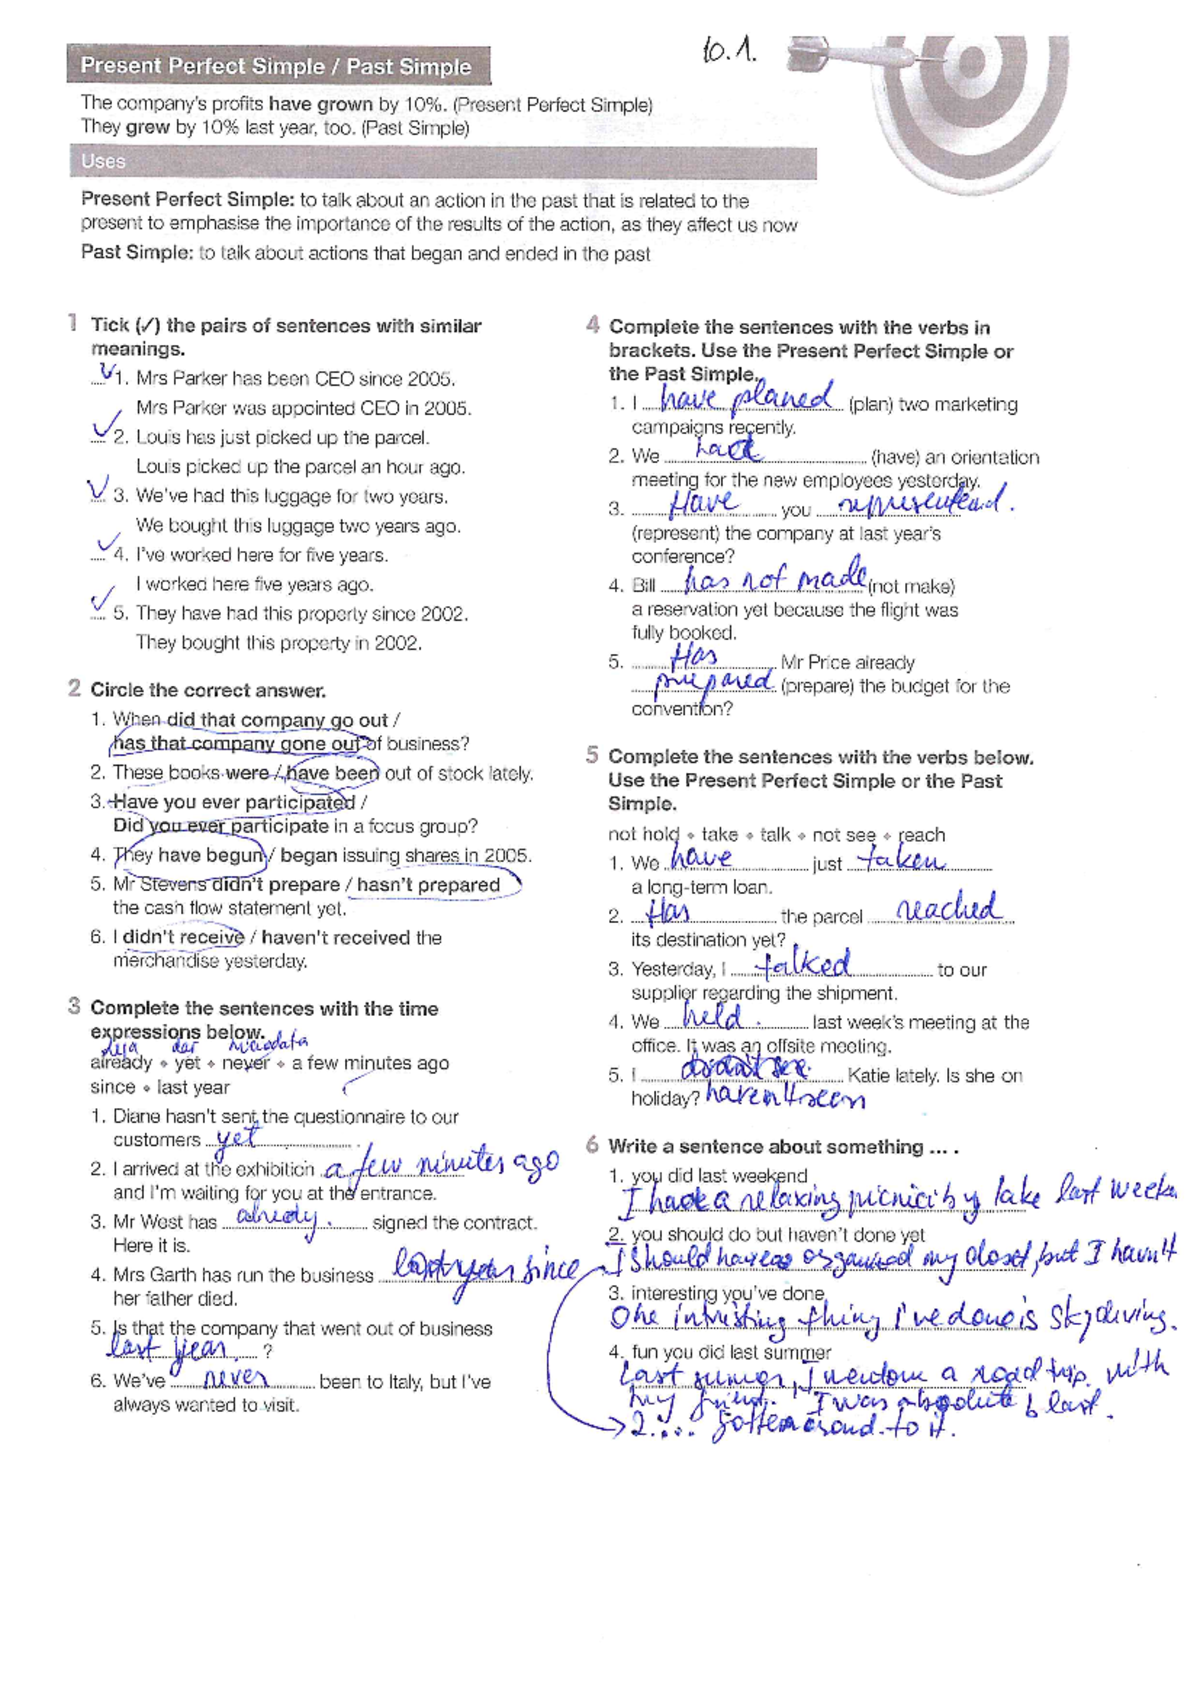 10.1.
Present Perfect Simple / Past Simple
The company's profits have grown by 10%. (Present Perfect Simple)
They grew by 10% last year, too. (Past Simple)
Uses
Present Perfect Simple: to talk about an action in the past that is related to the
present to emphasise the importance of the results of the action, as they affect us now
Past Simple: to talk about actions that began and ended in the past
1 Tick (✓) the pairs of sentences with similar
meanings.
✓ 1. Mrs Parker has been CEO since 2005.
Mrs Parker was appointed CEO in 2005.
✓ 2. Louis has just picked up the parcel.
Louis picked up the parcel an hour ago.
✓ 3. We've had this luggage for two years.
We bought this luggage two years ago.
✓ 4. I've worked here for five years.
I worked here five years ago.
✓ 5. They have had this property since 2002.
They bought this property in 2002.
2 Circle the correct answer.
1. When did that company go out /
has that company gone out of business?
2. These books were / have been out of stock lately.
3. Have you ever participated /
Did you ever participate in a focus group?
4. They have begun / began issuing shares in 2005.
5. Mr Stevens didn't prepare / hasn't prepared
the cash flow statement yet.
6. I didn't receive / haven't received the
merchandise yesterday.
3 Complete the sentences with the time
expressions below.
deja dar niciodata
already • yet • never • a few minutes ago
since • last year
1. Diane hasn't sent the questionnaire to our
customers yet .
2. I arrived at the exhibition a few minutes ago
and I'm waiting for you at the entrance.
3. Mr West has alredy. signed the contract.
Here it is.
4. Mrs Garth has run the business last year since
her father died.
5. Is that the company that went out of business
last year ?
6. We've never been to Italy, but I've
always wanted to visit.
4 Complete the sentences with the verbs in
brackets. Use the Present Perfect Simple or
the Past Simple.
1. I have planed (plan) two marketing
campaigns recently.
2. We had (have) an orientation
meeting for the new employees yesterday.
3. Have you represented.
(represent) the company at last year's
conference?
4. Bill has not made (not make)
a reservation yet because the flight was
fully booked.
5. Has Mr Price already
prepared (prepare) the budget for the
convention?
5 Complete the sentences with the verbs below.
Use the Present Perfect Simple or the Past
Simple.
not hold • take • talk • not see • reach
1. We have just taken
a long-term loan.
2. Has the parcel reached
its destination yet?
3. Yesterday, I talked to our
supplier regarding the shipment.
4. We held. last week's meeting at the
office. It was an offsite meeting.
5. I didn't see Katie lately. Is she on
holiday? haven't seen
6 Write a sentence about something ... .
1. you did last weekend
I had a relaxing picnic by lake last weeke
2. you should do but haven't done yet
I should have organised my closet, but I havn't
3. interesting you've done
One intristing thing I've done is skydiving.
4. fun you did last summer
Last sumer, I a road trip with
my friend. I was absolute blast.
→ 2.... gotten around to it.